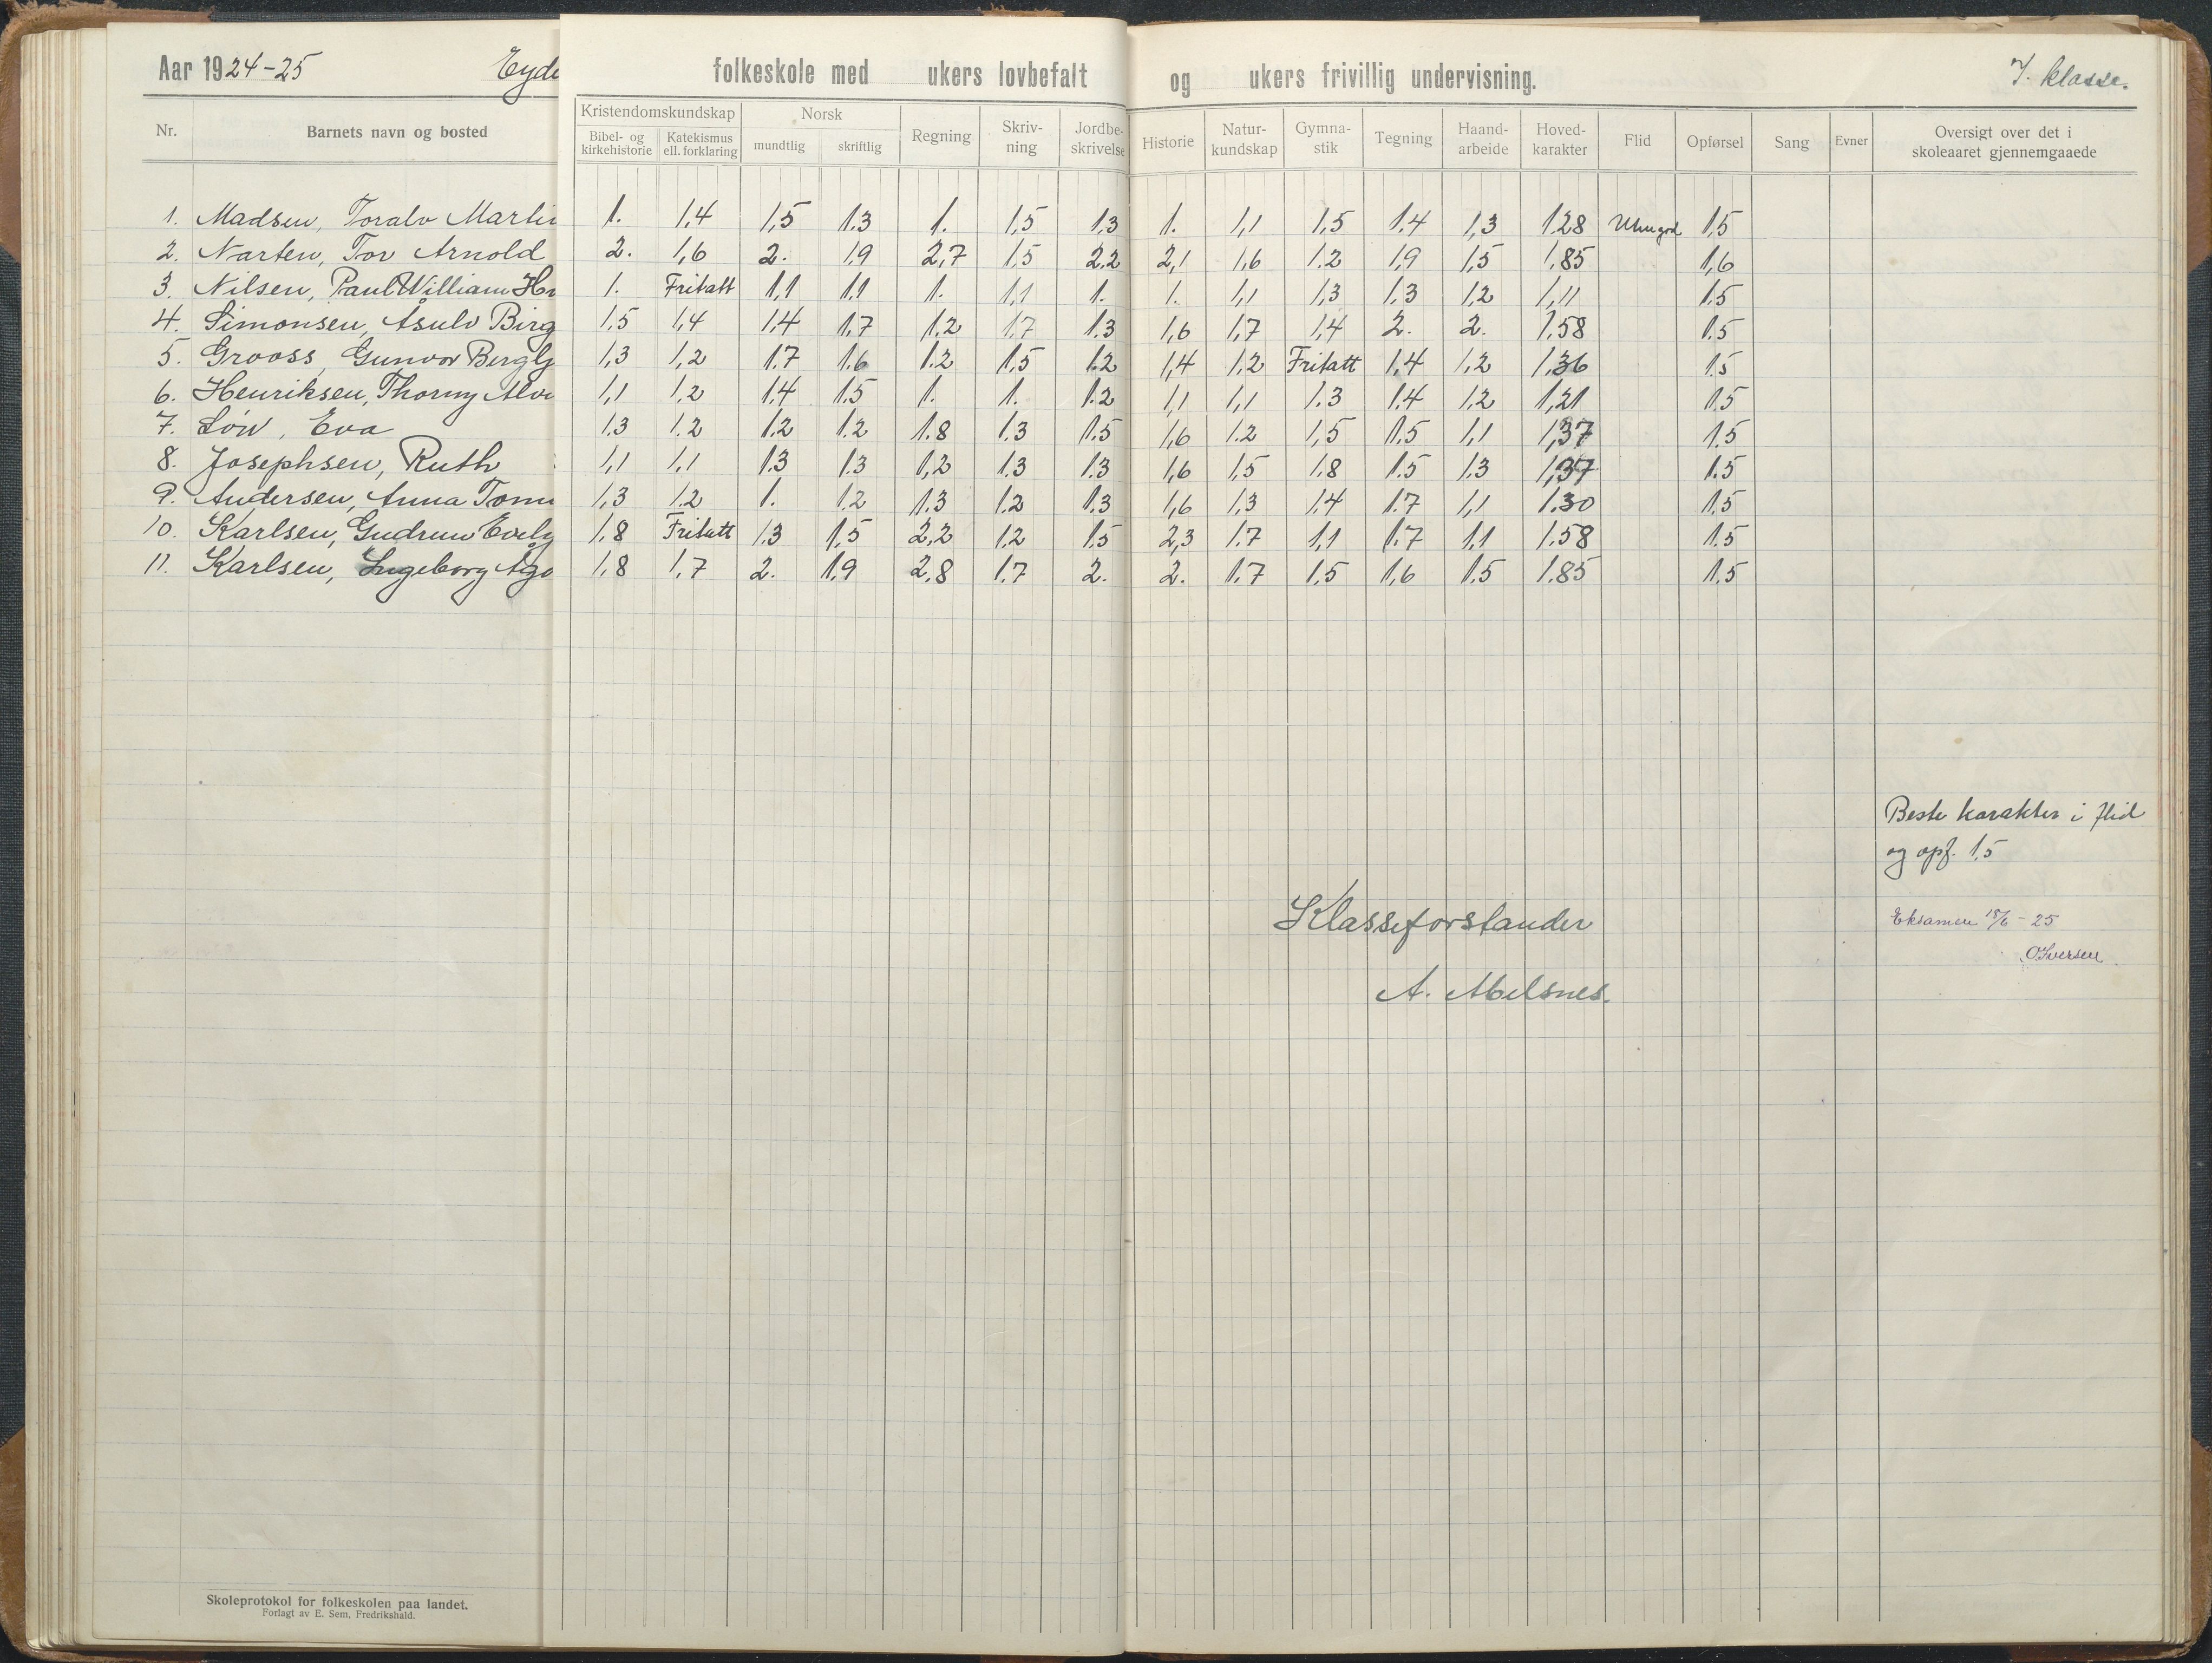 Aar 1924-25 Eyde folkeskole med ukers lovbefalt og ukers frivillig undervisning. 7. klasse.
Nr. Barnets navn og bosted Kristendomskundskap Norsk Regning Skriv- Jordbe- Historie Natur- Gymna- Tegning Haand- Hoved- Flid Opførsel Sang Evner Oversigt over det i
Bibel- og Katekismus mundtlig skriftlig ning skrivelse kundskap stik arbeide karakter skoleaaret gjennemgaaede
kirkehistorie ell. forklaring
1. Madsen, Toralv Martin 1. 1,4 1,5 1.3 1. 1,5 1.3 1. 1,1 1,5 1.4 1,3 1.28 1,5
2. Narten, Tor Arnold 2. 1,6 2. 1.9 2,7 1.5 2.2 2,1 1,6 1.2 1,9 1,5 1.85 1,6
3. Nilsen, Paul William He 1. Fritatt 1,1 1.1 1. 1,1 1. 1. 1,1 1,3 1.3 1.2 1,11 1.5
4. Simonsen, Åsulv Birg 1,5 1,4 1.4 1.7 1.2 1.7 1.3 1,6 1,7 1,4 2. 2. 1.58 1.5
5. Grooss, Gunvor Berglj 1,3 1,2 1.7 1.6 1.2 1,5 1.2 1,4 1,2 Fritatt 1,4 1,2 1,36 1.5
6. Henriksen, Thorny Alvi 1,1 1,2 1.4 1.5 1. 1. 1.2 1,1 1,1 1.3 1.4 1,2 1,21 1.5
7. Löw, Eva 1.3 1.2 1.2 1.2 1.8 1.3 1.5 1,6 1.2 1,5 1.5 1,1 1,37 1.5
8. Josephsen, Ruth 1,1 1,1 1.3 1.3 1,2 1.3 1.3 1,6 1,5 1.8 1.5 1.3 1,37 1.5
9. Andersen, Anna Tom 1,3 1.2 1. 1.2 1.3 1.2 1.3 1,6 1,3 1.4 1.7 1,1 1.30 1.5
10. Karlsen, Gudrun Evely 1,8 Fritatt 1.3 1,5 2,2 1.2 1.5 2,3 1.7 1,1 1.7 1,1 1.58 1.5
11. Karlsen, Ingeborg Ago 1,8 1,7 2. 1,9 2,8 1.7 2. 2. 1.7 1,5 1,6 1.5 1.85 1,5
Beste karakter i flid
og opf. 1,5
Klasseforstander
A. Abelsnes.
Eksamen 18/6 - 25
O Iversen
Skoleprotokol for folkeskolen paa landet.
Forlagt av E. Sem, Fredrikshald.